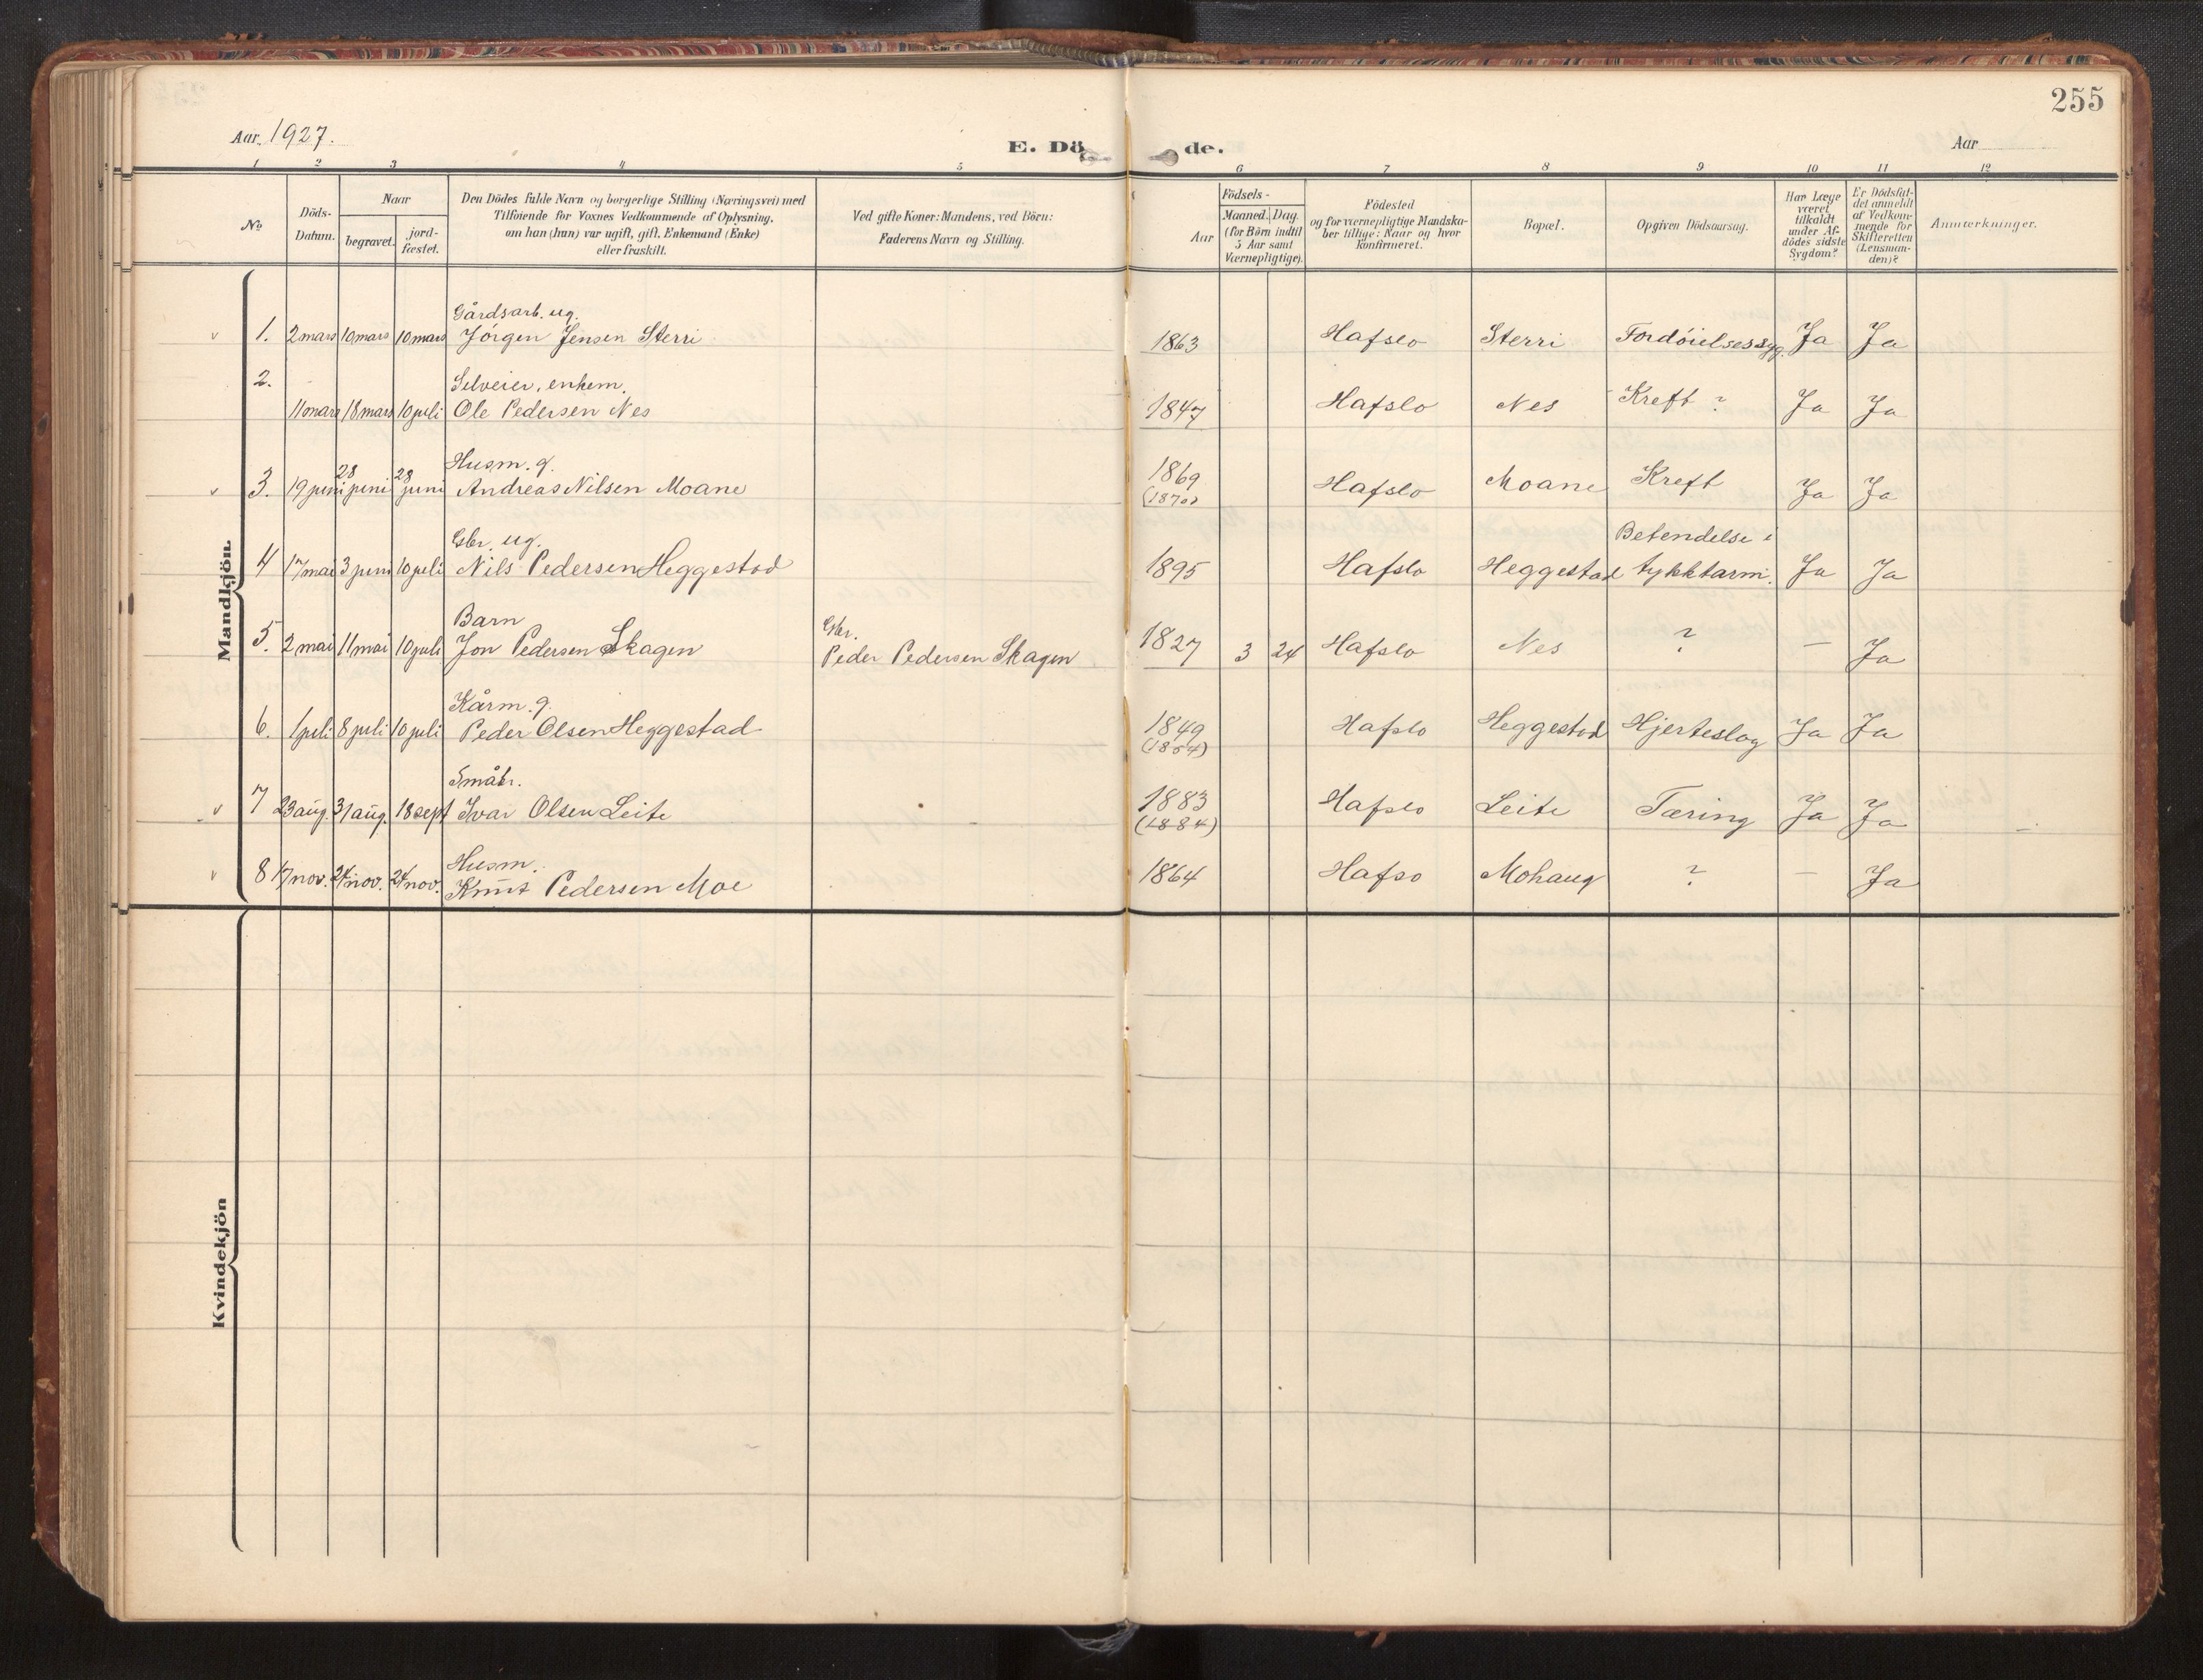 255
Aar 1927.
E. Döde.
Aar
1 2 3 4 5 6 7 8 9 10 11 12
No
Döds-Datum.
Naar
begravet.
jord-fæstet.
Den Dödes fulde Navn og borgerlige Stilling (Næringsvei) med
Tilföiende for Voxnes Vedkommende af Oplysning,
om han (hun) var ugift, gift, Enkemand (Enke)
eller fraskilt.
Ved gifte Koner: Mandens, ved Börn:
Faderens Navn og Stilling.
Födsels-
Aar
Maaned. Dag.
(for Börn indtil
5 Aar samt
Værnepligtige).
Födested
og for værnepligtige Mandska-
ber tillige: Naar og hvor
Konfirmeret.
Bopæl.
Opgiven Dödsaarsag.
Har Læge
været
tilkaldt
under Af-
dödes sidste
Sygdom?
Er Dödsfal-
det anmeldt
af Vedkom-
mende for
Skifteretten
(Lensman-
den)?
Anmærkninger.
Mandkjön.
Gårdsarb. ug.
1. 2 mars 10 mars 10 mars Jörgen Jensen Sterri 1863 Hafslo Sterri Fordöielsessyg. Ja Ja
2. Selveier, enkem.
11 mars 18 mars 10 juli Ole Pedersen Nes 1847 Hafslo Nes Kreft ? Ja Ja
Husm. g.
3. 19 juni 28 juni 28 juni Andreas Nilsen Moane 1869 Hafslo Moane Kreft Ja Ja
(1870)
Gbr. ug. Betendelse i
4 17 mai 3 juni 10 juli Nils Pedersen Heggestad 1895 Hafslo Heggestad tykktarm. Ja Ja
Barn Gbr.
5. 2 mai 11 mai 10 juli Jon Pedersen Skagen Peder Pedersen Skagen 1827 3 24 Hafslo Nes ? — Ja
Kårm. g.
6. 1 juli 8 juli 10 juli Peder Olsen Heggestad 1849 Hafslo Heggestad Hjerteslag Ja Ja
(1854)
Småbr.
7 23 aug. 31 aug. 18 sept Ivar Olsen Leite 1883 Hafslo Leite Tæring Ja Ja
(1884)
Husm.
8 17 nov. 24 nov. 24 nov. Knut Pedersen Moe 1864 Hafso Mohaug ? — Ja
Kvindekjön